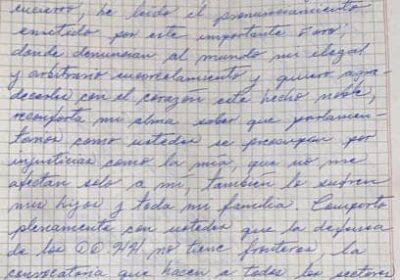 encierro, he leído el pronunciamiento
emitido por este importante foro,
donde denuncian al mundo mi ilegal
y arbitrario encarcelamiento y quiero agra-
decerles con el corazón este hecho noble,
reconforta mi alma saber que parlamen-
tarios como ustedes se preocupan por
injusticias como la mía, que no me
afectan sólo a mí, también lo sufren
mis hijos y toda mi familia. Comparto
plenamente con ustedes que la defensa
de los DD HH no tiene fronteras, la
convocatoria que hacen a todos los sectores